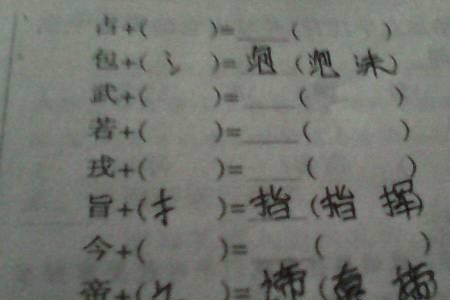 古+( )=____( )
包+(氵)=泡(泡沫)
武+( )=____( )
若+( )=____( )
戎+( )=____( )
旨+(扌)=指(指挥)
今+( )=____( )
帝+( )=